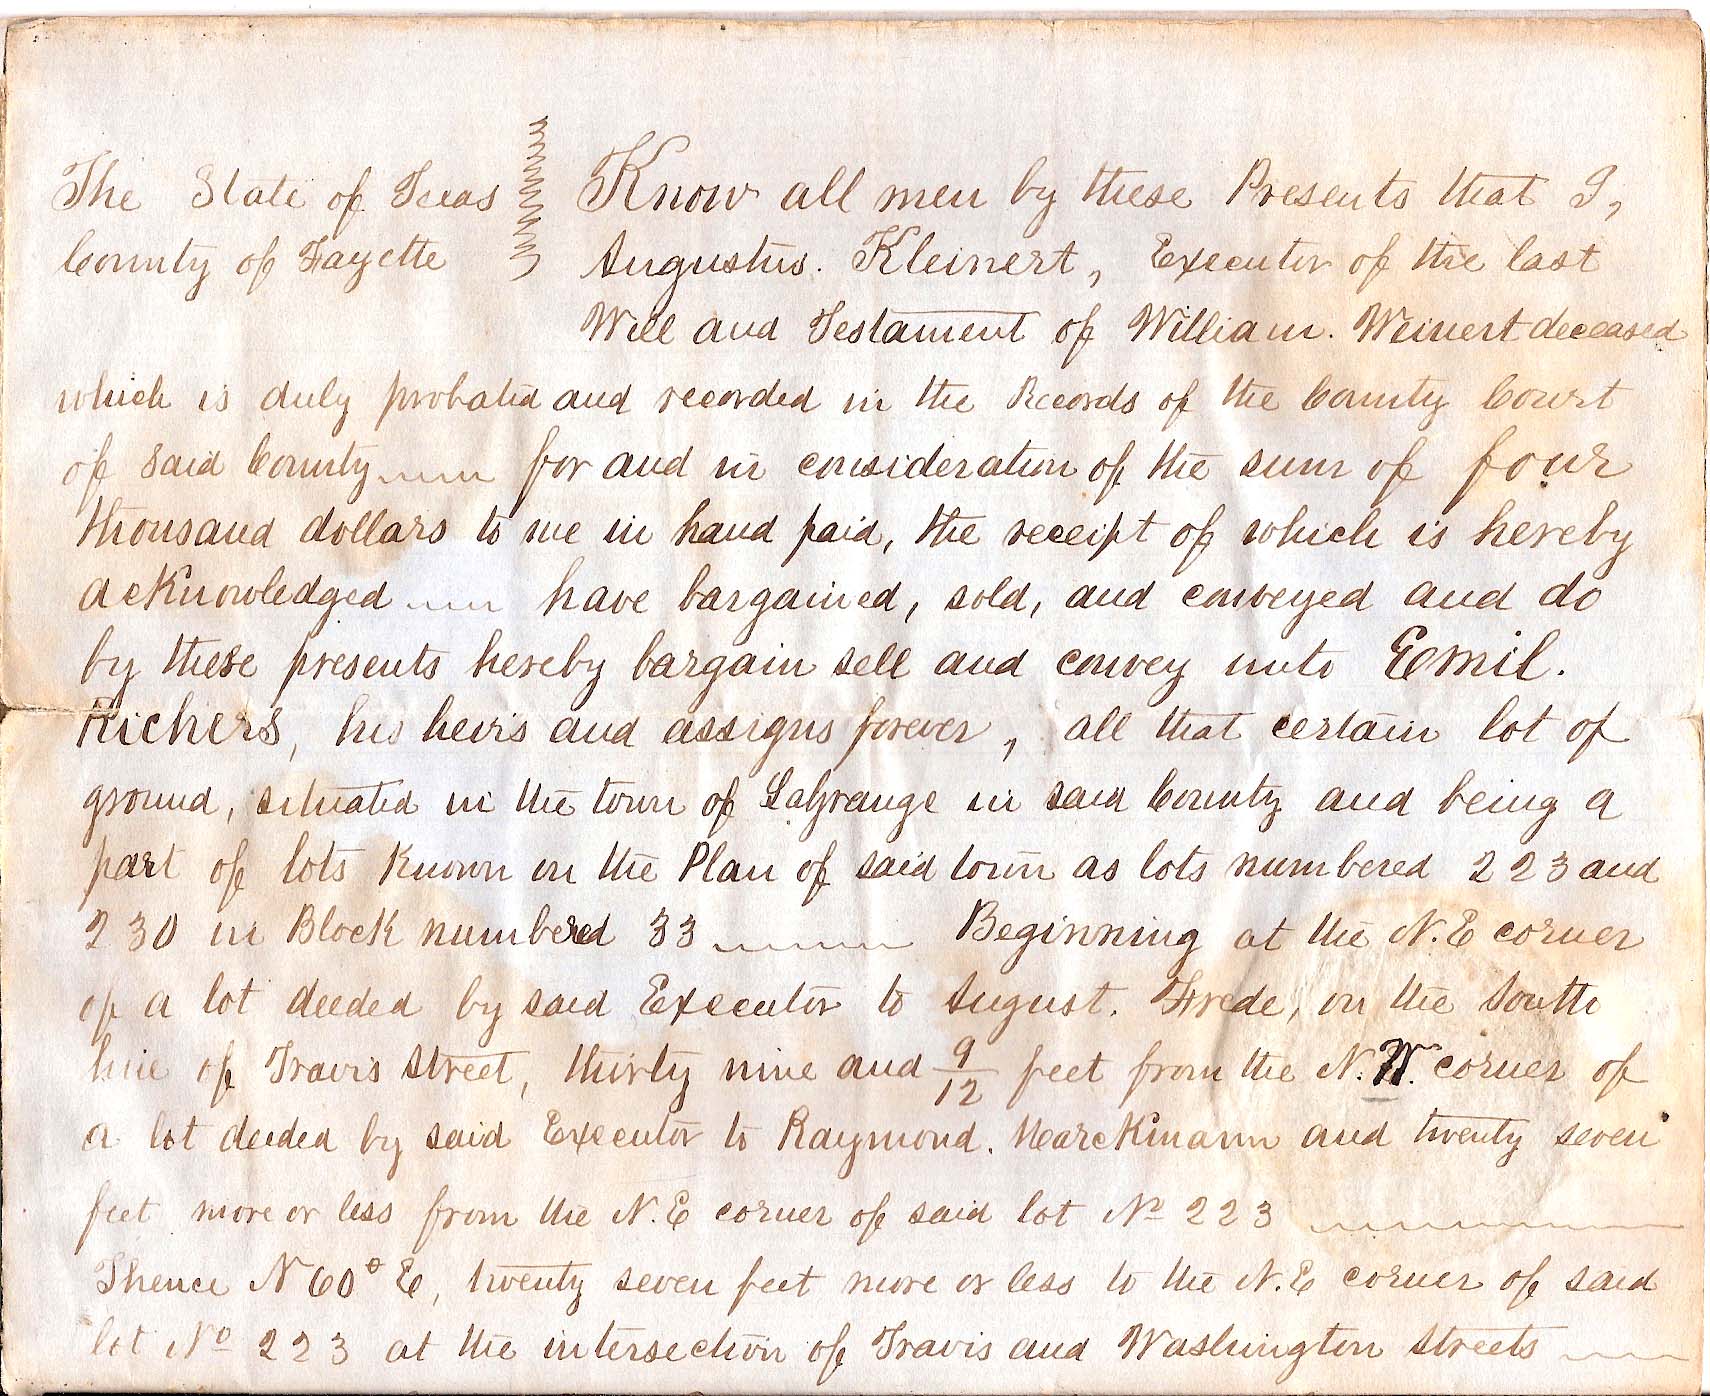 The State of Texas Know all men by these Presents that I,
County of Fayette Augustus. Kleinert, Executor of the last
Will and Testament of William. Weinert deceased
which is duly probated and recorded in the Records of the County Court
of said County for and in consideration of the sum of four
thousand dollars to me in hand paid, the receipt of which is hereby
acknowledged have bargained, sold, and conveyed and do
by these presents hereby bargain sell and convey unto Emil.
Richers, his heirs and assigns forever, all that certain lot of
ground, situated in the town of LaGrange in said County and being a
part of lots known on the Plan of said town as lots numbered 223 and
230 in Block numbered 33 Beginning at the N.E corner
of a lot deeded by said Executor to August. Frede, on the South
line of Travis Street, thirty nine and 9/12 feet from the N.W. corner of
a lot deeded by said Executor to Raymond. and twenty seven
feet more or less from the N.E corner of said lot No 223
Thence N 60° E, twenty seven feet more or less to the N.E corner of said
lot No 223 at the intersection of Travis and Washington Streets